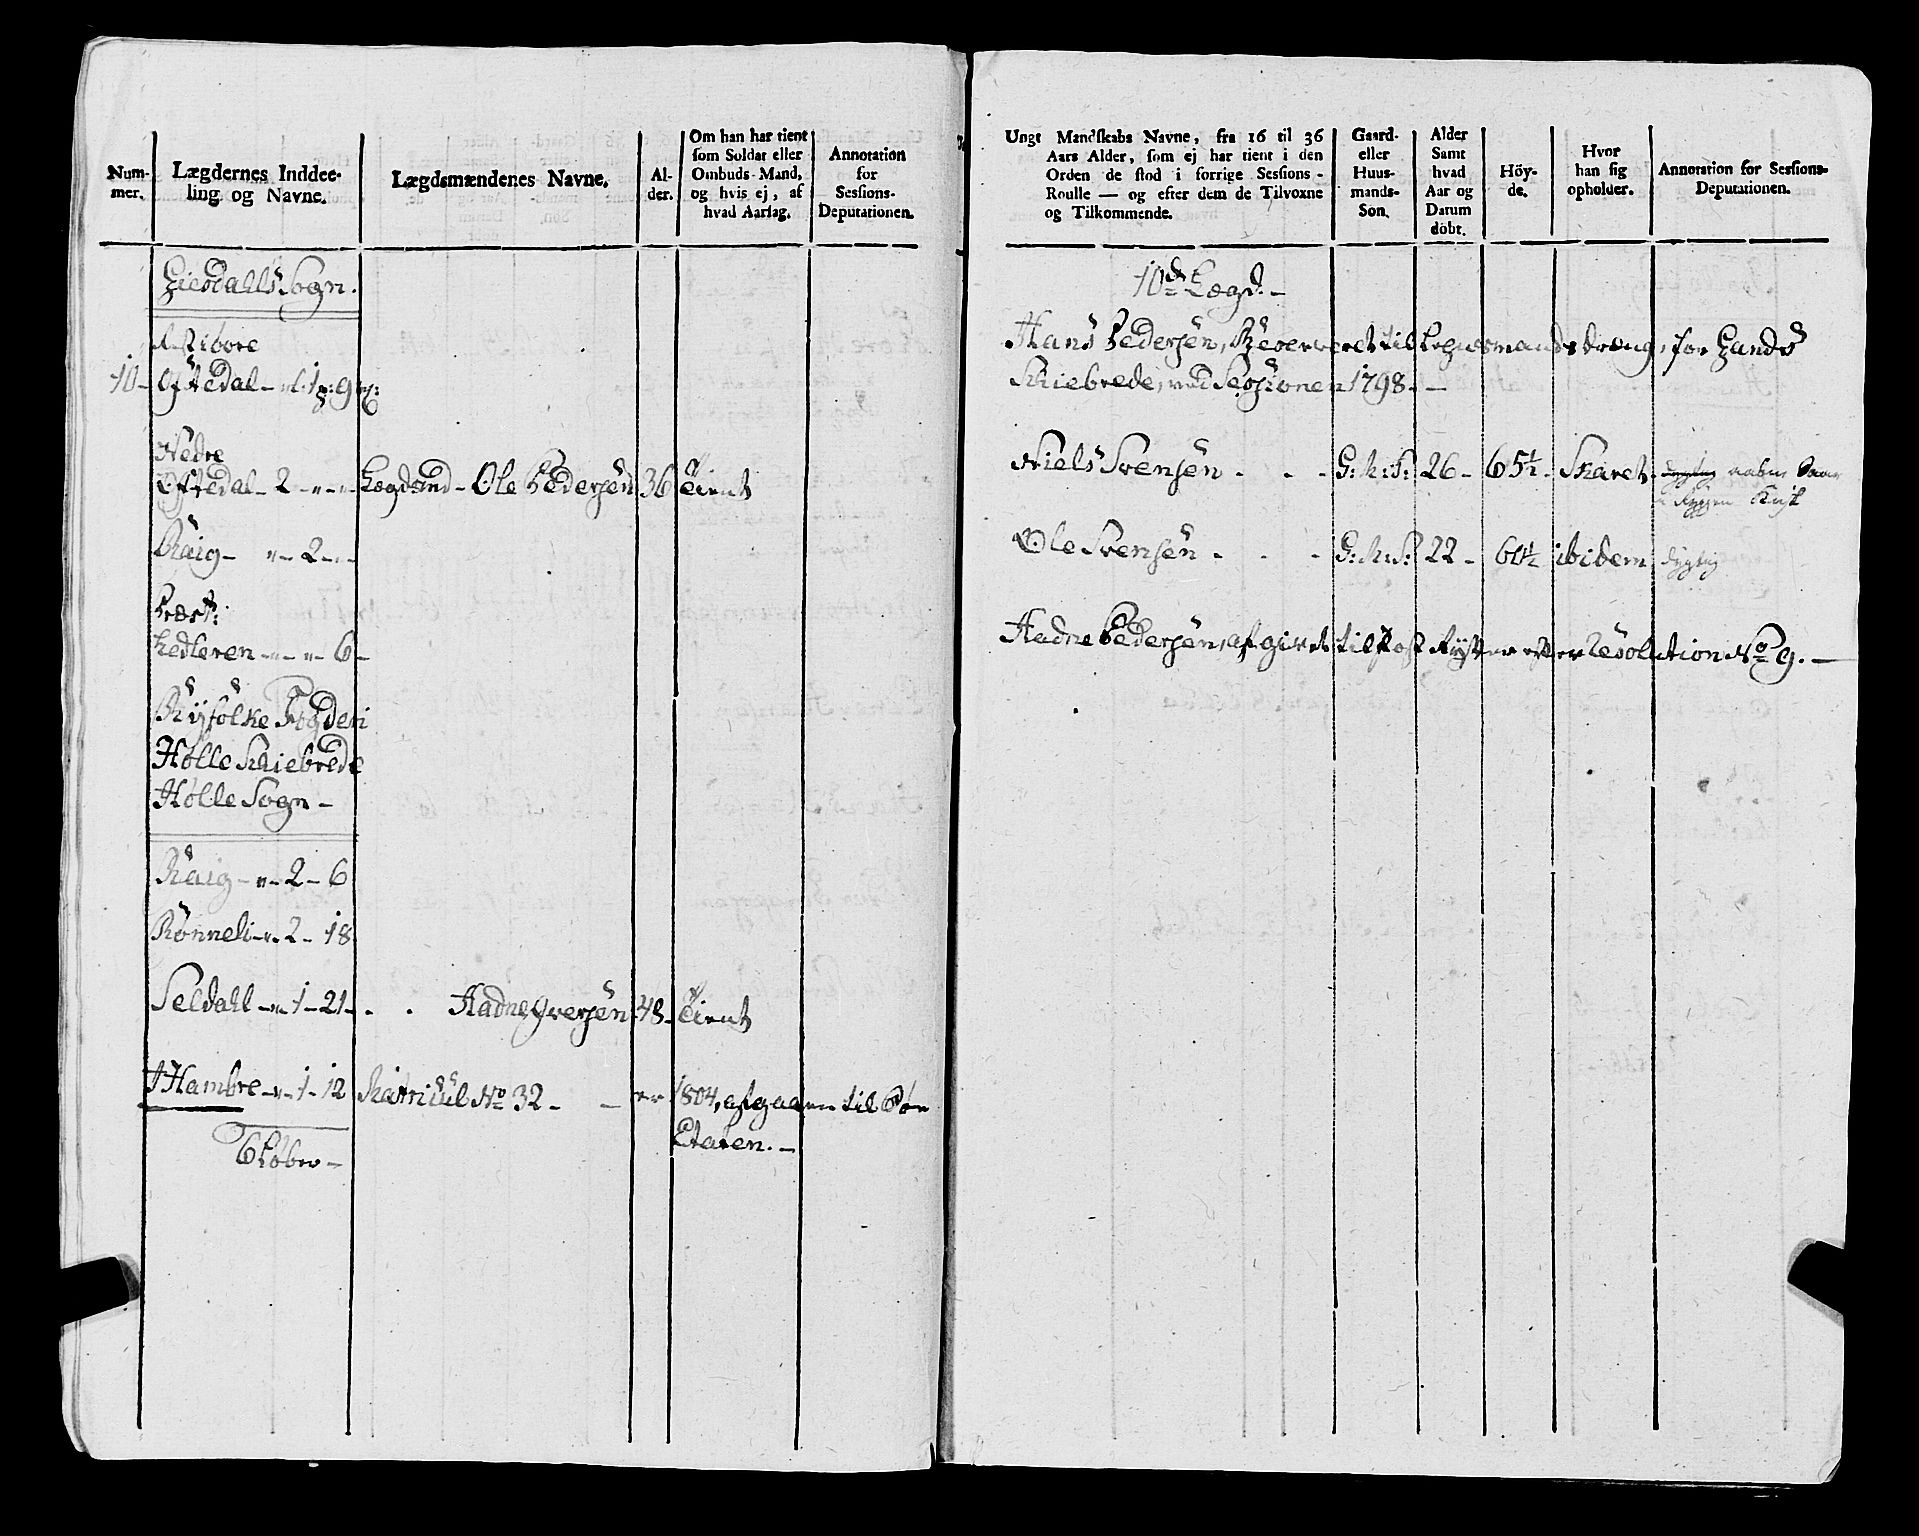 Num-
mer.
Lægdernes Inddee-
ling og Navne.
Lægdsmændenes Navne.
Al-
der.
Om han har tient
som Soldat eller
Ombuds-Mand,
og hvis ej, af
hvad Aarsag.
Annotation
for
Sessions-
Deputationen.
Giesdahls Sogn.
10 - Oftedal - 1 p: 9
Nedre
Oftedal - 2 - - - Lægdsmd - Ole Pedersen 36 Tient
Raig - " - 2 - -
Præst:
Kedleren - - " - 6 -
Ryfølke Fogderi
Hølle Skiebrede
Hølle Sogn -
Raig - " - 2 - 6
Rönneli - " - 2 - 18
Seldahl - " - 1 - 21 - . . Aadne Iversen 48 - Tient
Hambre - " - 1 - 12 Matricul No 32 - - er 1804, afgaaen til Søe
Etaten. -
6 Løber -
Ungt Mandskabs Navne, fra 16 til 36
Aars Alder, som ej har tient i den
Orden de stod i forrige Sessions-
Roulle — og efter dem de Tilvoxne
og Tilkommende.
Gaard-
eller
Huus-
mands-
Søn.
Alder
Samt
hvad
Aar og
Datum
döbt.
Höy-
de.
Hvor
han sig
opholder.
Annotation for Sessions-
Deputationen.
10de Lægd. -
Hans Pedersen, Reserveret til Lensmandsdreng, for Gands
Skiebrede, ved Sessionen 1798. -
Niels Svensen . . - G: M: S: 26 - 65½ - Skaret - dygtig aaben Saar
i Ryggen Kass
Ole Svensen . . - G: M: S: 22 - 61½ ibidem dygtig
Aadne Pedersen, afgivet til Post efter Resolution No 9. -